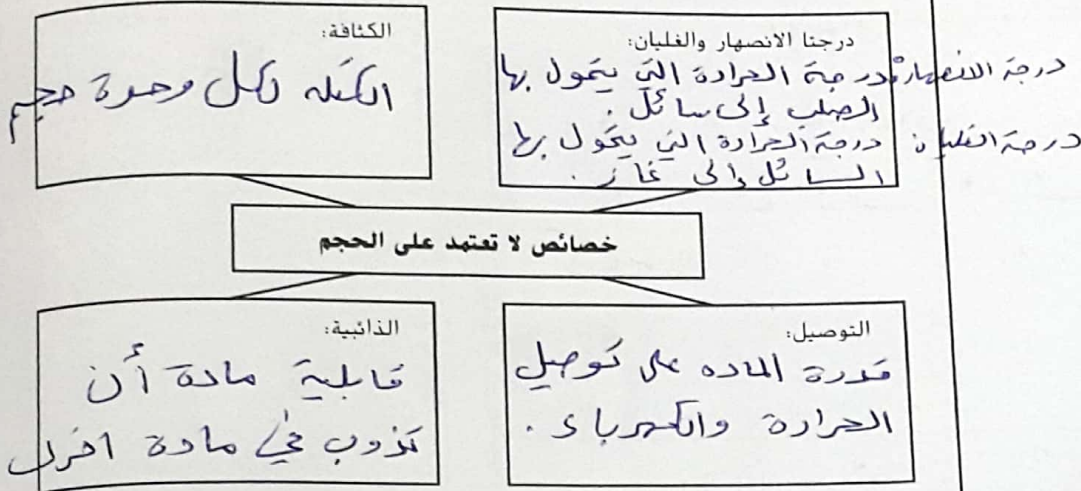 درجتا الانصهار والغليان:
درجة الانصهار: درجة الحرارة التي يتحول بها
الصلب إلى سائل.
درجة الغليان: درجة الحرارة التي يتحول بها
السائل إلى غاز.
الكثافة:
الكتله لكل وحدة حجم
خصائص لا تعتمد على الحجم
التوصيل:
قدرة الماده على توصيل
الحرارة والكهرباء.
الذائبية:
قابلية مادة أن
تذوب في مادة اخرى